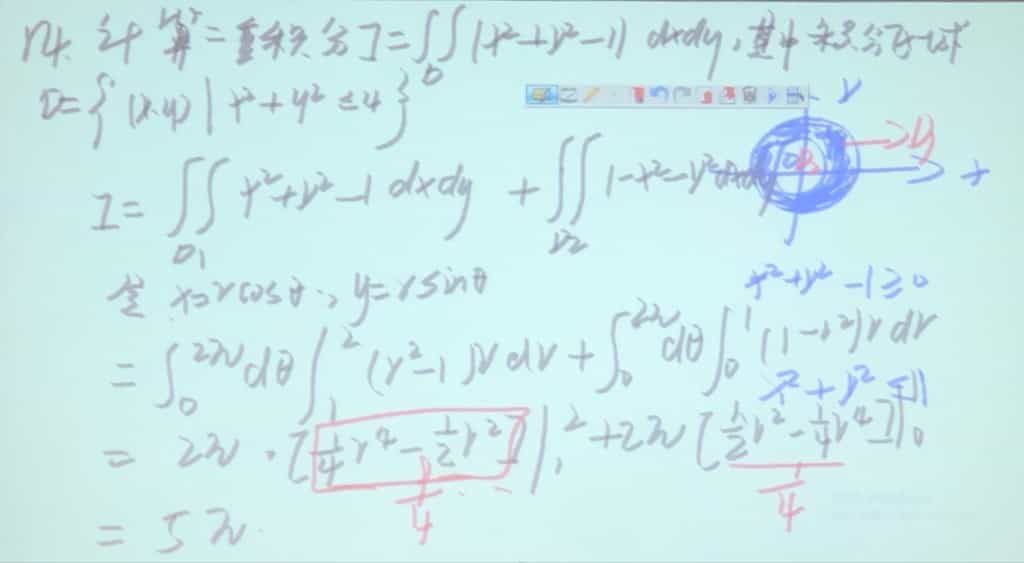 14. 计算二重积分 I=∬_D |x²+y²-1| dxdy, 其中积分区域
D={(x,y) | x²+y² ≤4}
y
I= ∬_D₁ x²+y²-1 dxdy + ∬_D₂ 1-x²-y² dxdy
x
x²+y²-1≥0
x=rcosθ, y=rsinθ
= ∫₀^2π dθ ∫₁² (r²-1) r dr + ∫₀^2π dθ ∫₀¹ (1-r²) r dr
= 2π·[1/4 r⁴ - 1/2 r²]|₁² + 2π[1/2 r² - 1/4 r⁴]|₀¹
1/4
= 5π